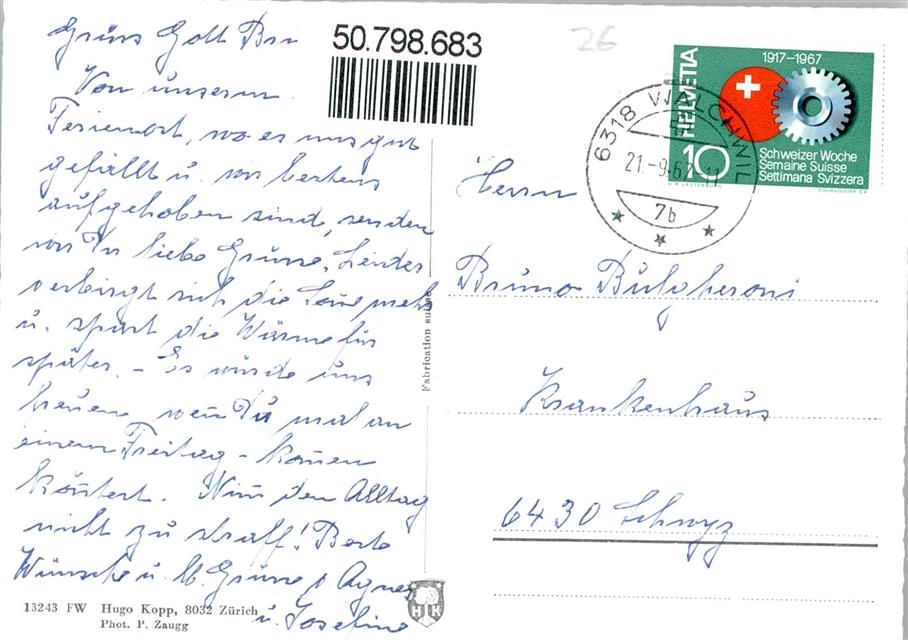 Grüss Gott Bru
Von unserem
Ferienort, wo es uns gut
gefällt u. wir bestens
aufgehoben sind, senden
wir Dir liebe Grüsse. Leider
verbirgt sich die Sonne mehr
u. spart die Wärme für
später. - Es würde uns
freuen wenn Du mal an
einem Freitag - komen
köntest. Nim den Alltag
nicht zu straff! Beste
Wünsche u. lb. Grüsse v Agnes
u. Josefine
13243 FW Hugo Kopp, 8032 Zürich
Phot. P. Zaugg
HK
Fabrication suisse
50.798.683
26
1917-1967
HELVETIA
10
Schweizer Woche
Semaine Suisse
Settimana Svizzera
COURVOISIER S.A.
6318 WALCHWIL
21.-9.67-11
7b
Herrn
Bruno Bulgheroni
Krankenhaus
6430 Schwyz